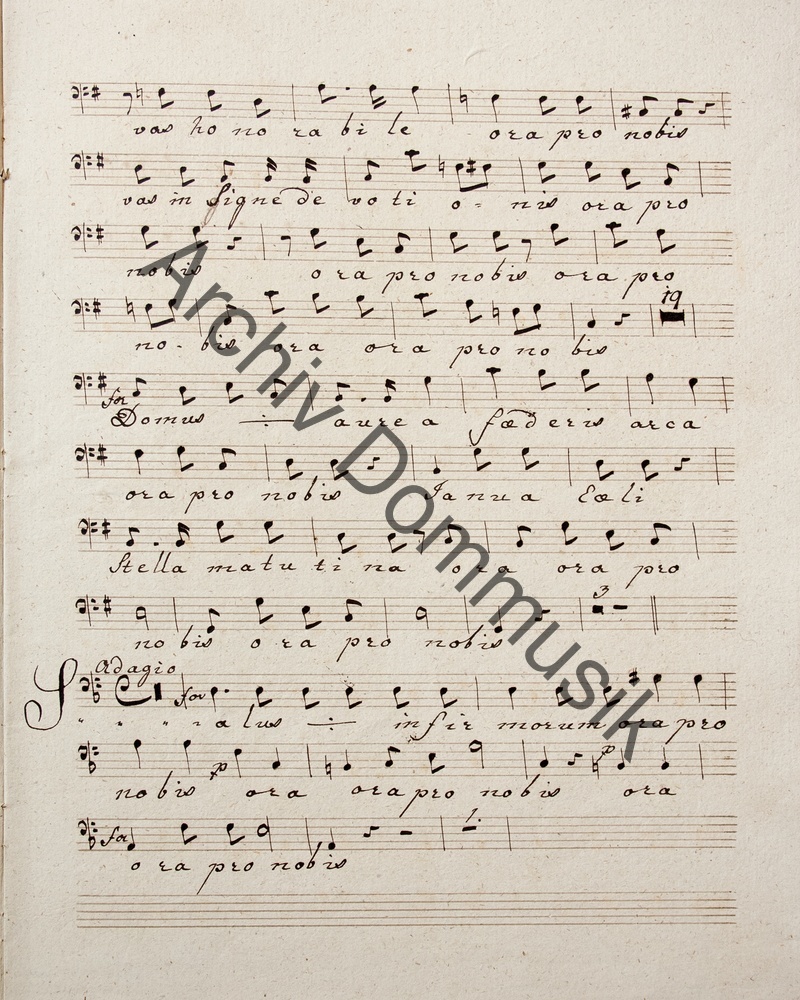 vas ho no ra bi le ora pro nobis
vas in signe de vo ti o - nis ora pro
nobis ora pro nobis ora pro
19
no - bis ora ora pro no bis
for
Domus ÷ aurea fœderis arca
ora pro nobis Janua Cœli
Stella matu ti na ora ora pro
3
no bis ora pro nobis
Adagio
for
Salus ÷ infir morum ora pro
p
nobis ora ora pro nobis ora
p
for
1.
ora pro nobis
Archiv Dommusik